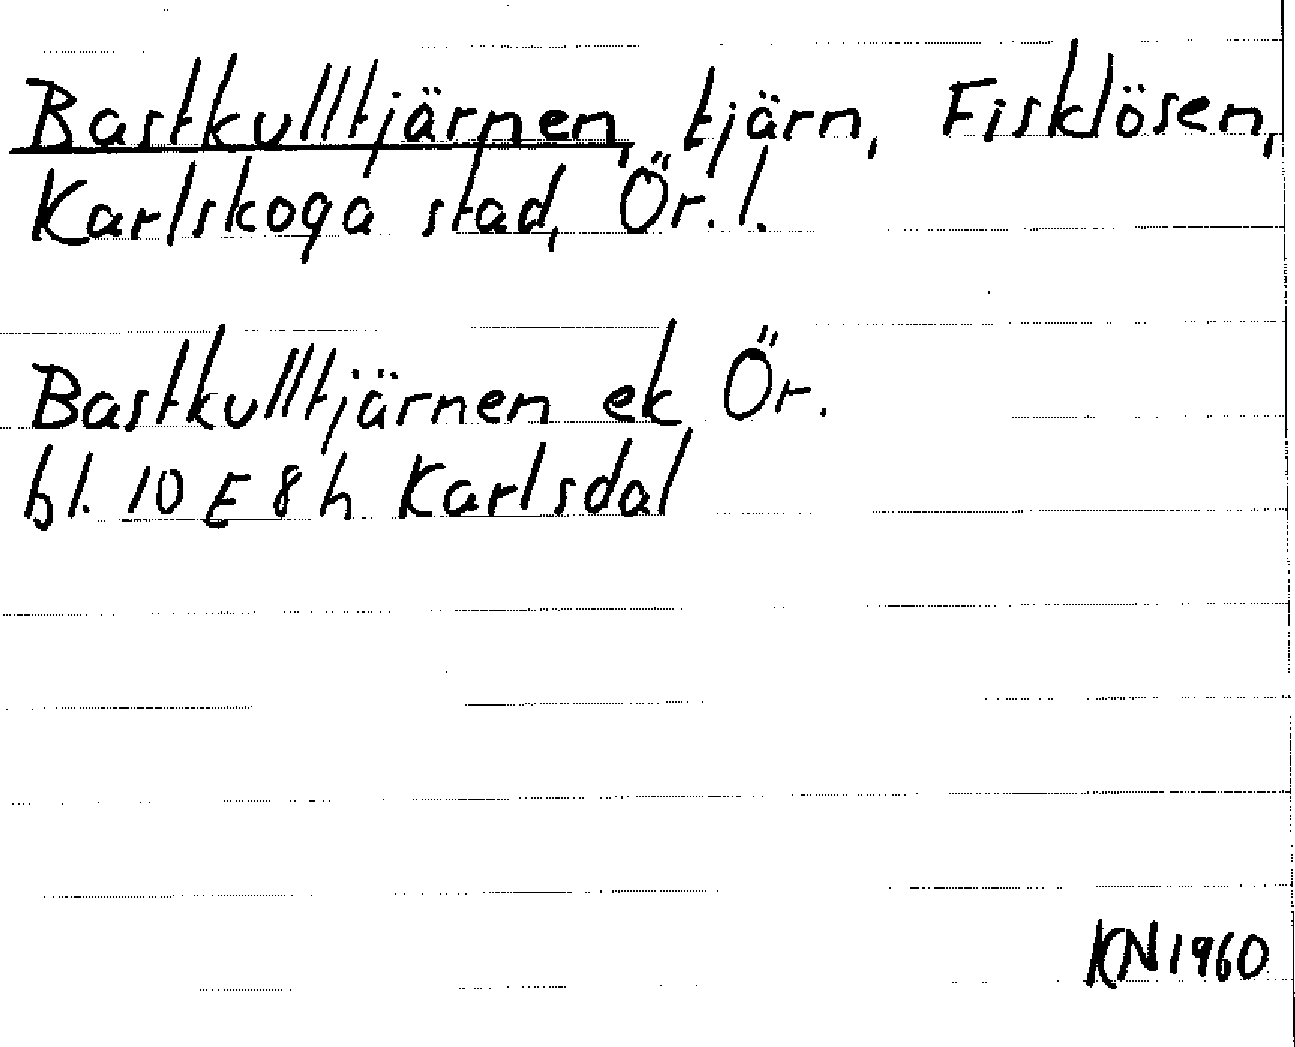 Bastkulltjärnen, tjärn, Fisklösen,
Karlskoga stad, Ör. l.
Bastkulltjärnen ek Ör.
bl. 10 E 8 h Karlsdal
KN 1960